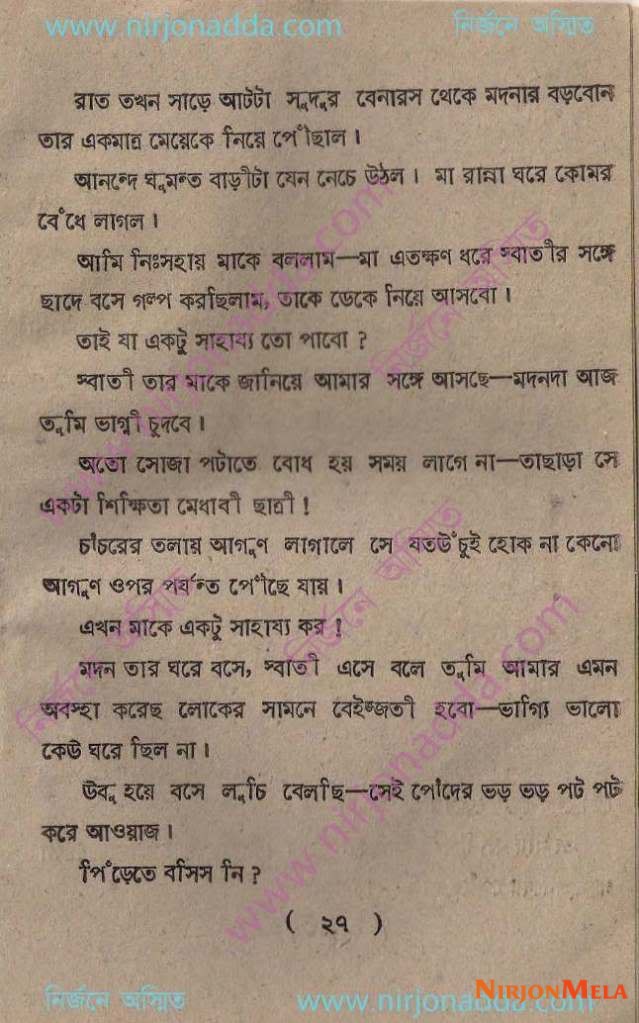 www.nirjonadda.com নির্জনে অস্মিত
রাত তখন সাড়ে আটটা সুদূর বেনারস থেকে মদনার বড়বোন
তার একমাত্র মেয়েকে নিয়ে পৌঁছাল।
আনন্দে ঘুমন্ত বাড়ীটা যেন নেচে উঠল। মা রান্না ঘরে কোমর
বেঁধে লাগল।
আমি নিঃসহায় মাকে বললাম—মা এতক্ষণ ধরে স্বাতীর সঙ্গে
ছাদে বসে গল্প করছিলাম, তাকে ডেকে নিয়ে আসবো।
তাই যা একটু সাহায্য তো পাবো ?
স্বাতী তার মাকে জানিয়ে আমার সঙ্গে আসছে—মদনদা আজ
তুমি ভাগ্নী চুদবে।
অতো সোজা পটাতে বোধ হয় সময় লাগে না—তাছাড়া সে
একটা শিক্ষিতা মেধাবী ছাত্রী !
চাঁচরের তলায় আগুণ লাগালে সে যতউঁচুই হোক না কেনো
আগুণ ওপর পর্যন্ত পৌঁছে যায়।
এখন মাকে একটু সাহায্য কর !
মদন তার ঘরে বসে, স্বাতী এসে বলে তুমি আমার এমন
অবস্থা করেছ লোকের সামনে বেইজ্জতী হবো—ভাগ্যি ভালো
কেউ ঘরে ছিল না।
উবু হয়ে বসে লুচি বেলছি—সেই পোঁদের ভড় ভড় পট পট
করে আওয়াজ।
পিঁড়েতে বসিস নি ?
( ২৭ )
নির্জনে অস্মিত www.nirjonadda.com
NIRJONMELA